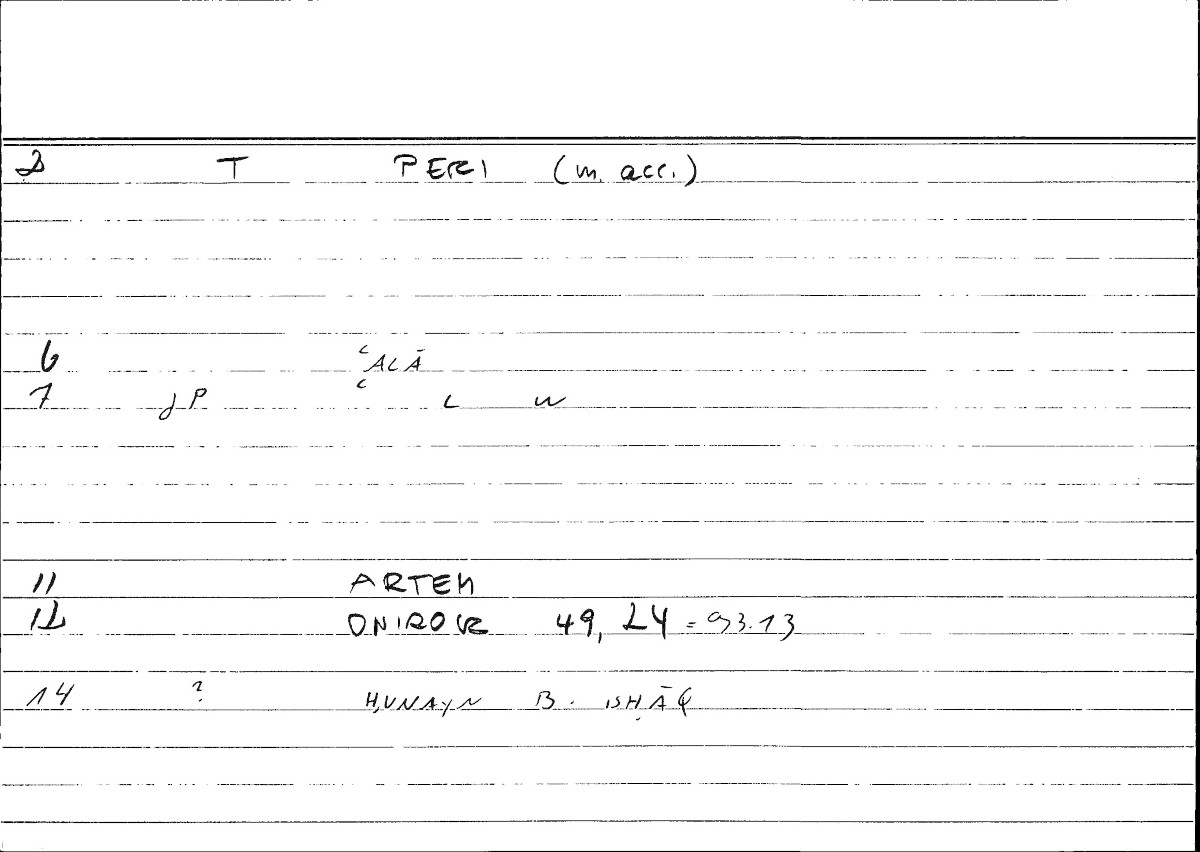 2 T PERI (m. acc.)
6 ʿALĀ
7 jP ʿ L W
11 ARTEM
12 ONIROCR 49, 24 = 93.13
14 ? ḤUNAYN B. ISḤĀQ